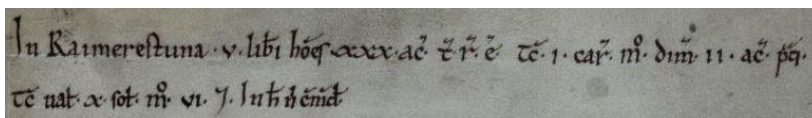 In Raimerestuna · v · libi hoẽs xxx · ac̃ · t̃ · r̃ · ẽ tc̃ · i · car̃ · m̊ · dim̃ · ii · ac̃ · p̃ti ·
tc̃ ual̃ · x · sol̃ · m̊ · vi · ⁊ · In h̃